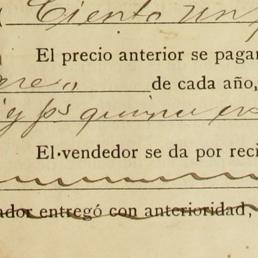 Ciento un
El precio anterior se pagar
de cada año,
El vendedor se da por reci
ador entregó con anterioridad,